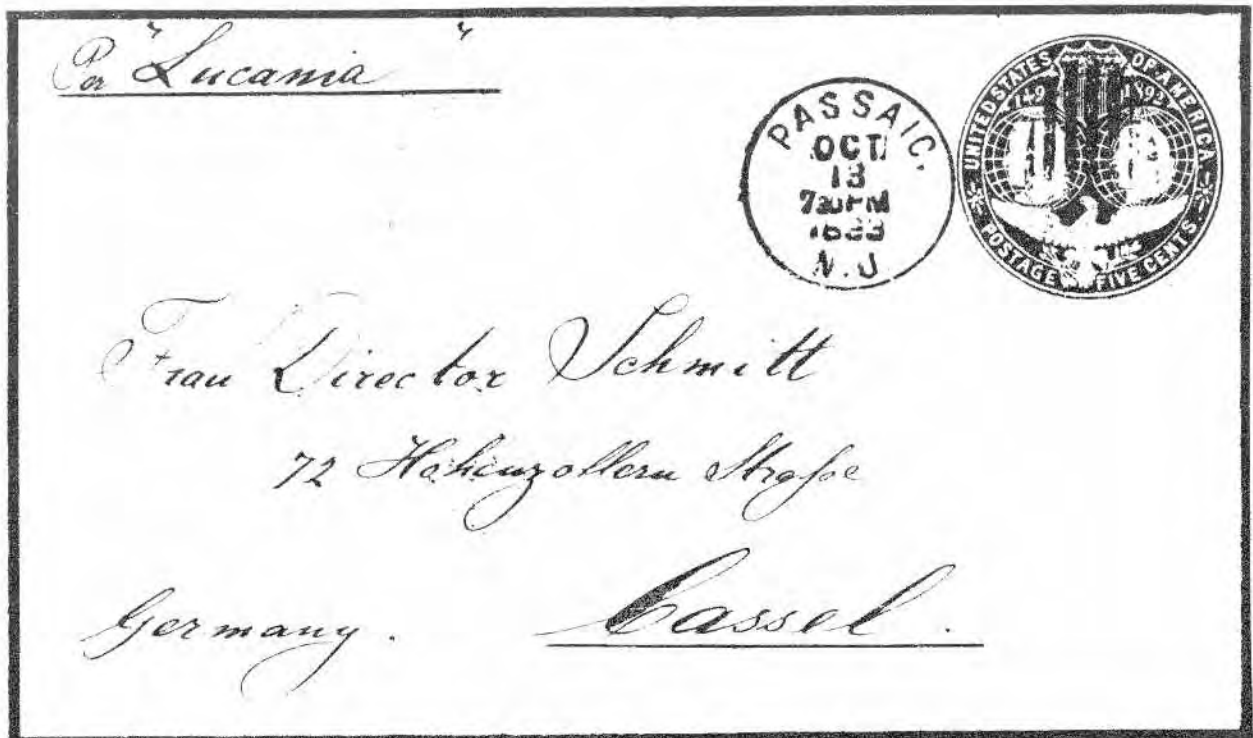 Per "Lucania"
PASSAIC,
OCT
13
7 30 PM
N.J
UNITED STATES OF AMERICA
1492 1892
POSTAGE FIVE CENTS
Frau Director Schmitt
72 Hohenzollern Straße
Germany. Cassel.